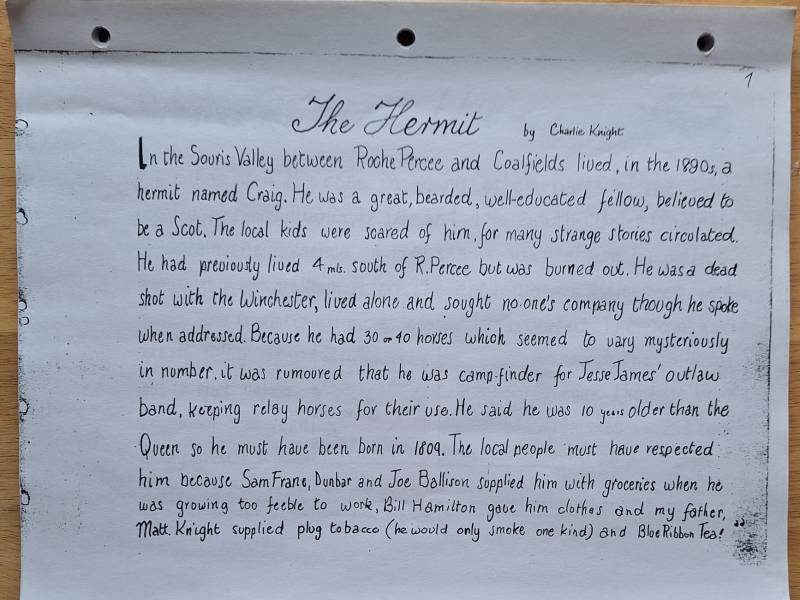 1
The Hermit by Charlie Knight
In the Souris Valley between Roche Percee and Coalfields lived, in the 1890s, a
hermit named Craig. He was a great, bearded, well-educated fellow, believed to
be a Scot. The local kids were scared of him, for many strange stories circulated.
He had previously lived 4 mls. south of R. Percee but was burned out. He was a dead
shot with the Winchester, lived alone and sought no one's company though he spoke
when addressed. Because he had 30 or 40 horses which seemed to vary mysteriously
in number, it was rumoured that he was camp-finder for Jesse James' outlaw
band, keeping relay horses for their use. He said he was 10 years older than the
Queen so he must have been born in 1809. The local people must have respected
him because Sam Frane, Dunbar and Joe Ballison supplied him with groceries when he
was growing too feeble to work, Bill Hamilton gave him clothes and my father,
Matt. Knight supplied plug tobacco (he would only smoke one kind) and Blue Ribbon Tea!"